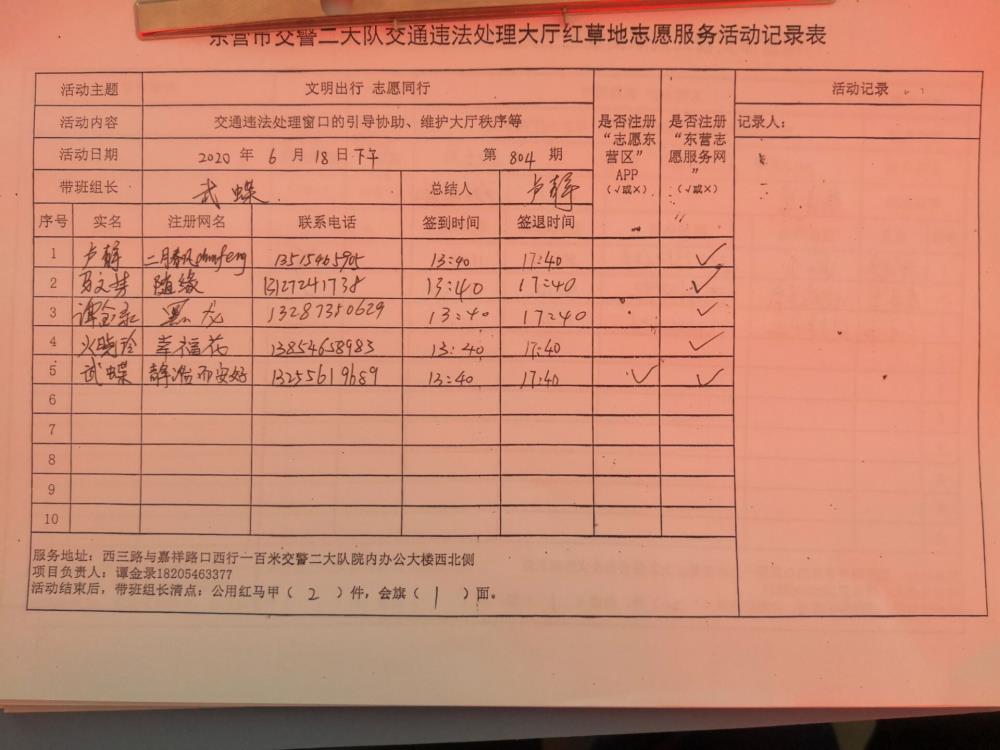 东营市交警二大队交通违法处理大厅红草地志愿服务活动记录表
活动主题 文明出行 志愿同行 活动记录
活动内容 交通违法处理窗口的引导协助、维护大厅秩序等
是否注册“志愿东营区”APP（√或×）
是否注册“东营志愿服务网”（√或×）
记录人：
活动日期 2020 年 6 月 18 日下午 第 804 期
带班组长 武蝶 总结人 卢静
序号 实名 注册网名 联系电话 签到时间 签退时间
1 卢静 二月春风chunfeng 13515465905 13:40 17:40 √
2 随缘 13127241738 13:40 17:40 √
3 谭金录 黑龙 13287350629 13:40 17:40 √
4 火晓玲 幸福花 13854658983 13:40 17:40 √
5 武蝶 静治而安好 13255619689 13:40 17:40 √ √
6
7
8
9
10
服务地址：西三路与嘉祥路口西行一百米交警二大队院内办公大楼西北侧
项目负责人：谭金录18205463377
活动结束后，带班组长清点：公用红马甲（ 2 ）件，会旗（ 1 ）面。